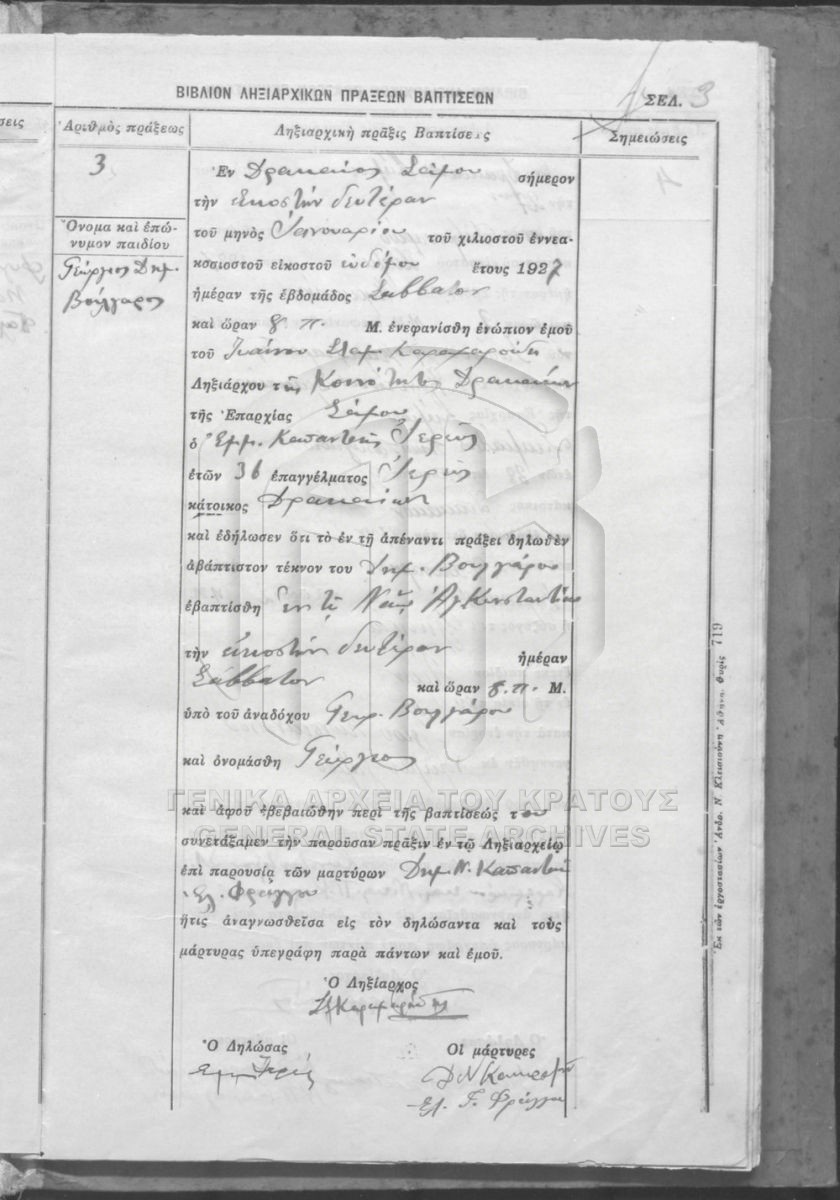 ΒΙΒΛΙΟΝ ΛΗΞΙΑΡΧΙΚΩΝ ΠΡΑΞΕΩΝ ΒΑΠΤΙΣΕΩΝ
ΣΕΛ. 3
σεις
Ἀριθμὸς πράξεως
Ληξιαρχικὴ πρᾶξις Βαπτίσεως
Σημειώσεις
3
Ὄνομα καὶ ἐπώ-
νυμον παιδίου
Γεώργιος Δημ.
Βούλγαρος
Ἐν Δρακαίοις Σάμου σήμερον
τὴν εἰκοστὴν δευτέραν
τοῦ μηνὸς Ἰανουαρίου τοῦ χιλιοστοῦ ἐννεα-
κοσιοστοῦ εἰκοστοῦ ἑβδόμου ἔτους 1927
ἡμέραν τῆς ἑβδομάδος Σάββατον
καὶ ὥραν 8 π. Μ. ἐνεφανίσθη ἐνώπιον ἐμοῦ
τοῦ Ἰωάννου Σταμ.
Ληξιάρχου τῆς Κοινότητος Δρακαίων
τῆς Ἐπαρχίας Σάμου
ὁ Ἐμμ. Καπαντκῆς Ἱερεὺς
ἐτῶν 36 ἐπαγγέλματος Ἱερεὺς
κάτοικος Δρακαίων
καὶ ἐδήλωσεν ὅτι τὸ ἐν τῇ ἀπέναντι πράξει δηλωθὲν
ἀβάπτιστον τέκνον του Δημ. Βουλγάρου
ἐβαπτίσθη ἐν τῷ Ναῷ Ἁγ Κωνσταντίνου
τὴν εἰκοστὴν δευτέραν ἡμέραν
Σάββατον καὶ ὥραν 8 π. Μ.
ὑπὸ τοῦ ἀναδόχου Γεωρ. Βουλγάρου
καὶ ὀνομάσθη Γεώργιος
ΓΕΝΙΚΑ ΑΡΧΕΙΑ ΤΟΥ ΚΡΑΤΟΥΣ
καὶ ἀφοῦ ἐβεβαιώθην περὶ τῆς βαπτίσεώς του
GENERAL STATE ARCHIVES
συνετάξαμεν τὴν παροῦσαν πρᾶξιν ἐν τῷ Ληξιαρχείῳ
ἐπὶ παρουσίᾳ τῶν μαρτύρων Δημ. Ν.
Ἐλ. Φράγγου
ἥτις ἀναγνωσθεῖσα εἰς τὸν δηλώσαντα καὶ τοὺς
μάρτυρας ὑπεγράφη παρὰ πάντων καὶ ἐμοῦ.
Ὁ Ληξίαρχος
Ὁ Δηλώσας
Οἱ μάρτυρες
Ἐμμ Ἱερεύς
Δ Ν
Ἐλ. Γ. Φράγγου
Ἐκ τῶν ἐργοστασίων Ἀνδρ. Ν. Κλεισιούνη Ἀθῆναι Θυρὶς 719